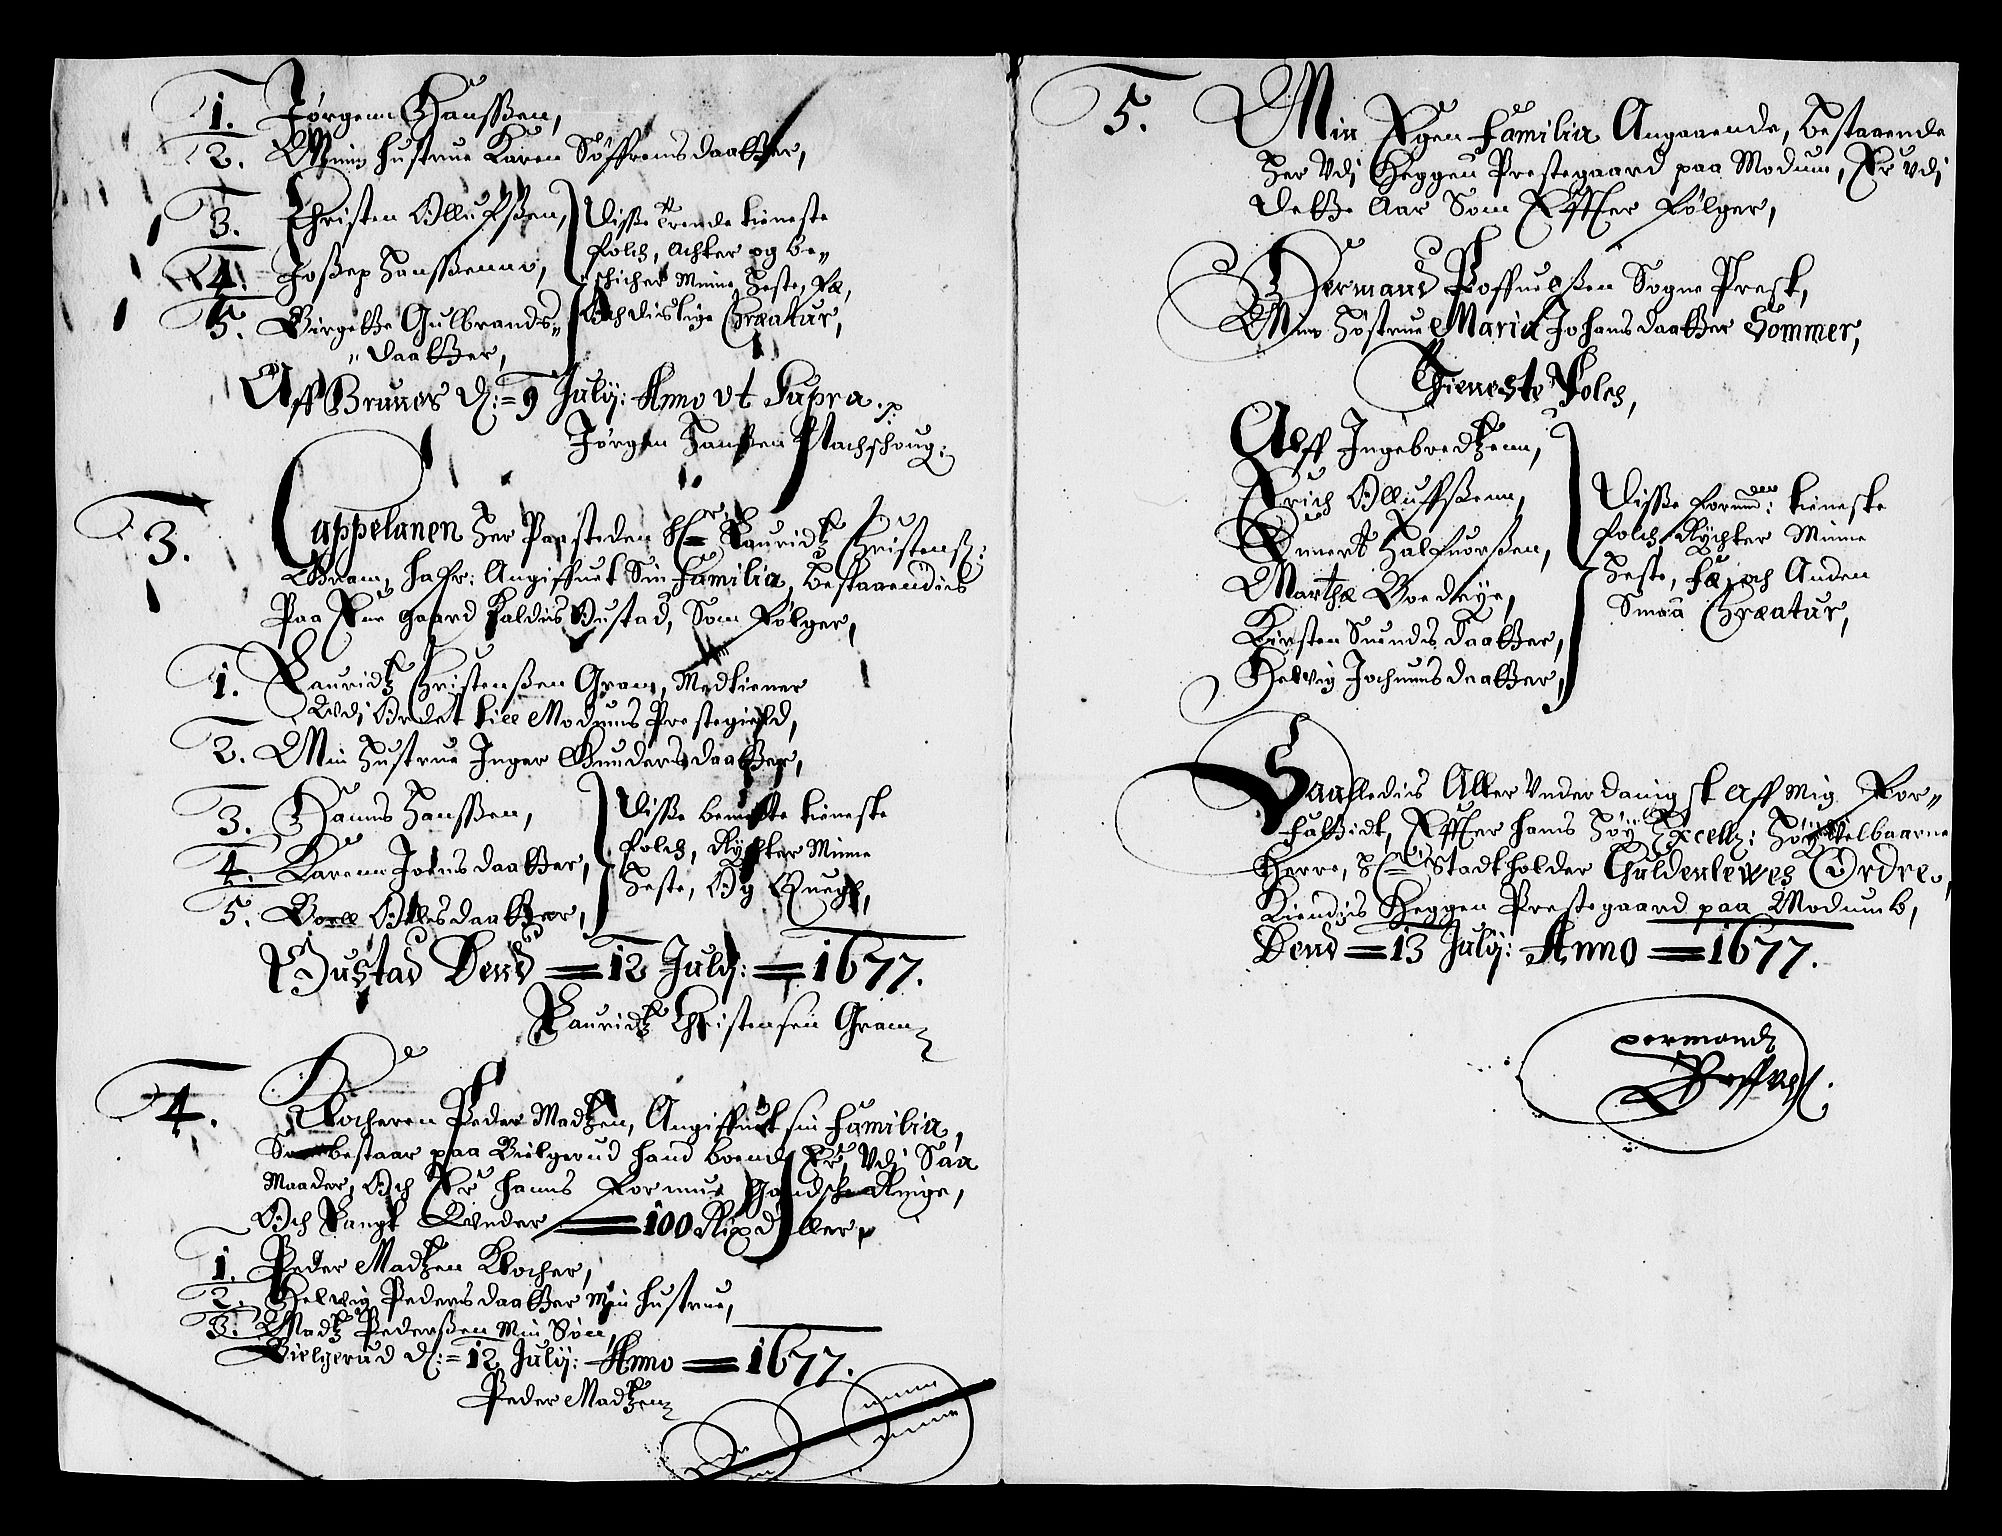 1. Jørgenn Hanssßen,
2. Minn hustrue Karen Søffrensdaatter,
3. Christen Olluffßen,
4. Joßep Hanssßenn,
5. Birgette Gulbrands-
daatter,
Disse trende tieneste
folch, achter og be-
schicher minne heste, fæ,
Och dislige Creatur,
Aff Brunes d: 9 July: Anno ut Supra.
Jørgen Hanßen Nachschoug:
3. Cappelanen her paa steden Hr Lauridtz Christenß:
Gram, hafr: angiffuet Sin Familia, bestaaendis
paa En gaard kaldis Bustad, Som følger,
1. Lauridtz Christenßen Gram, Medtiener
Udi Ordet till Modums Prestegield,
2. Min hustrue Inger Gundersdaatter,
3. Hanns Hanssßen,
4. Karenn Joensdaatter,
5. Boell Olesdaatter,
Disse bemelte tieneste
folch, Røchter minne
heste, Og Quegh,
Bustad Dend = 12 July: = 1677.
Lauridtz Christensen Gram
4. Klocheren Peder Madtzen, Angiffuet sin Familia,
Som bestaar paa Bielgerud hand boende Er, Udi Saa
Maader, Och Er hanns Formue Gandsche Ringe,
Och langt Under = 100 Rixdaller
1. Peder Madtzen Klocher,
2. Helwig Pedersdaatter min hustrue,
3. Madtz Pederßen min Søn,
Bielgerud d: = 12 July: Anno = 1677.
Peder Madtzen
5. Min Egen Familia Angaaende, bestaaende
her Udi Heggen Prestegaard paa Modum, Er Udi
dette aar Som Effter følger,
Hermand Poffuelßen Sogne Prest,
Min Høstrue Maria Johansdaatter Sommer,
Tieneste Folch,
Alff Ingebredtzenn,
Erich Olluffßenn,
Einert Halfuorßen,
Marthæ Boedeye,
Kirsten Suendsdaatter,
Helvig Jochumsdaatter,
Disse forumden: tieneste
folch, Røchter Minne
heste, fæ, och Anden
Smaa Creatur,
Saalledis Aller Underdanigst aff mig For-
fattidt, Effter hans Høy Excellz: Høy Velbaarne
Herre, Hr Stadtholder Guldenlewes Ordre,
Kiendis Heggen Prestegaard paa Modumb,
Dend = 13 July: Anno = 1677.
Hermand
Poffuelß.